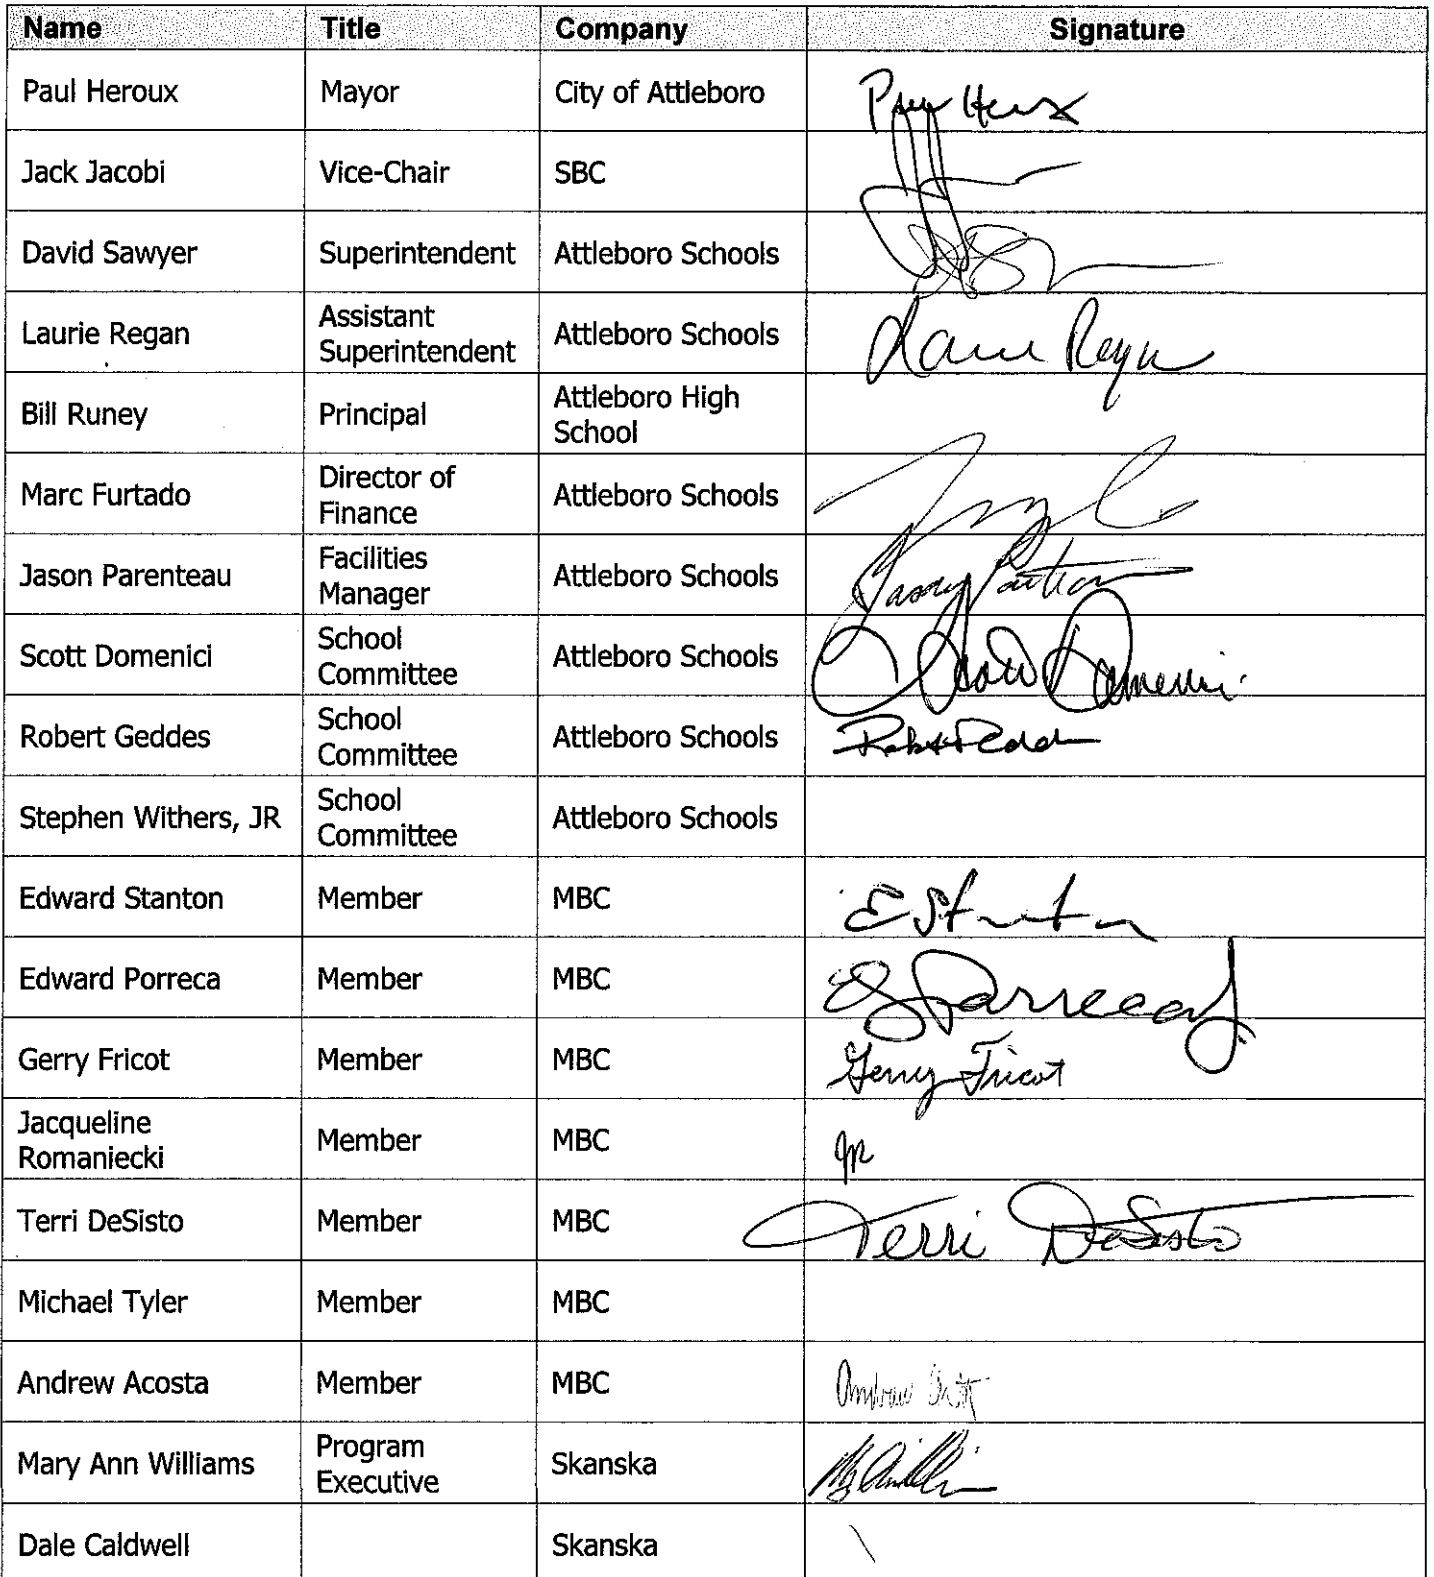 Name Title Company Signature
Paul Heroux Mayor City of Attleboro Paul Heroux
Jack Jacobi Vice-Chair SBC
David Sawyer Superintendent Attleboro Schools
Laurie Regan Assistant Superintendent Attleboro Schools Laurie Regan
Bill Runey Principal Attleboro High School
Marc Furtado Director of Finance Attleboro Schools
Jason Parenteau Facilities Manager Attleboro Schools
Scott Domenici School Committee Attleboro Schools Scott Domenici
Robert Geddes School Committee Attleboro Schools
Stephen Withers, JR School Committee Attleboro Schools
Edward Stanton Member MBC E Stanton
Edward Porreca Member MBC
Gerry Fricot Member MBC Gerry Fricot
Jacqueline Romaniecki Member MBC JR
Terri DeSisto Member MBC Terri DeSisto
Michael Tyler Member MBC
Andrew Acosta Member MBC Andrew
Mary Ann Williams Program Executive Skanska
Dale Caldwell Skanska